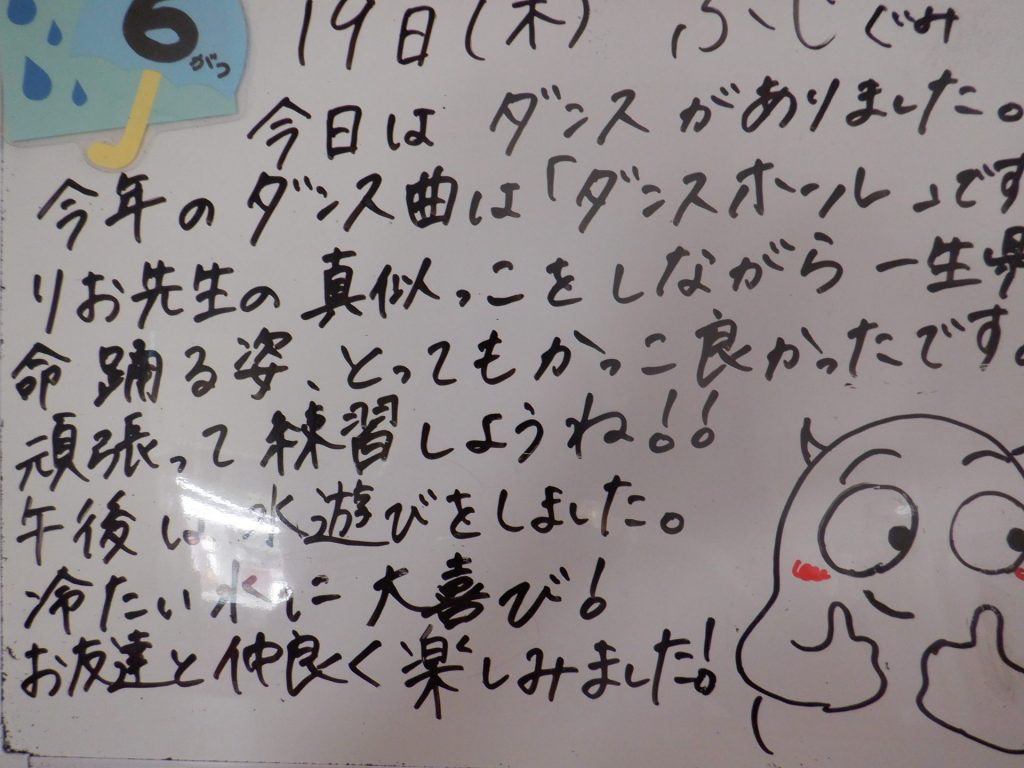 6がつ 19日(木) ふじぐみ
今日は ダンスがありました。
今年のダンス曲は「ダンスホール」です
りお先生の真似っこをしながら一生懸
命踊る姿、とってもかっこ良かったです。
頑張って練習しようね!!
午後は水遊びをしました。
冷たい水に大喜び!
お友達と仲良く楽しみました!